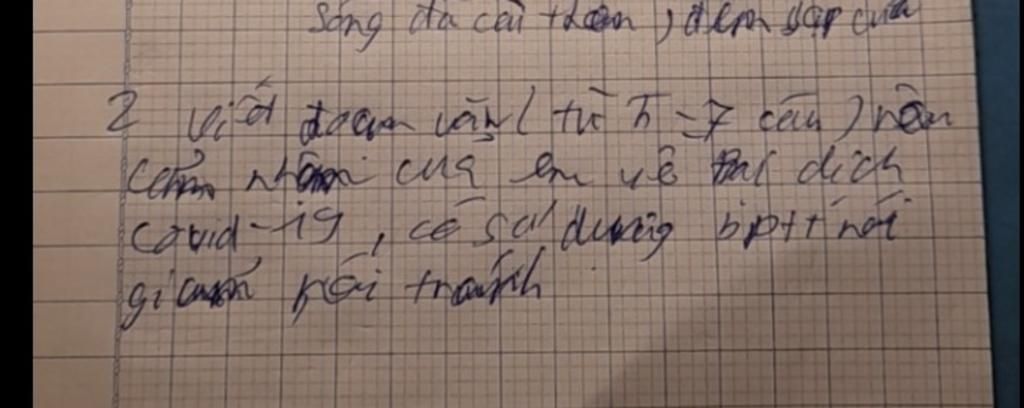 sóng đã cài then, đêm sập cửa
2 Viết đoạn văn ( từ 5 - 7 câu ) nêu
cảm nhận của em về đại dịch
covid-19, có sử dụng bptt nói
giảm nói tránh